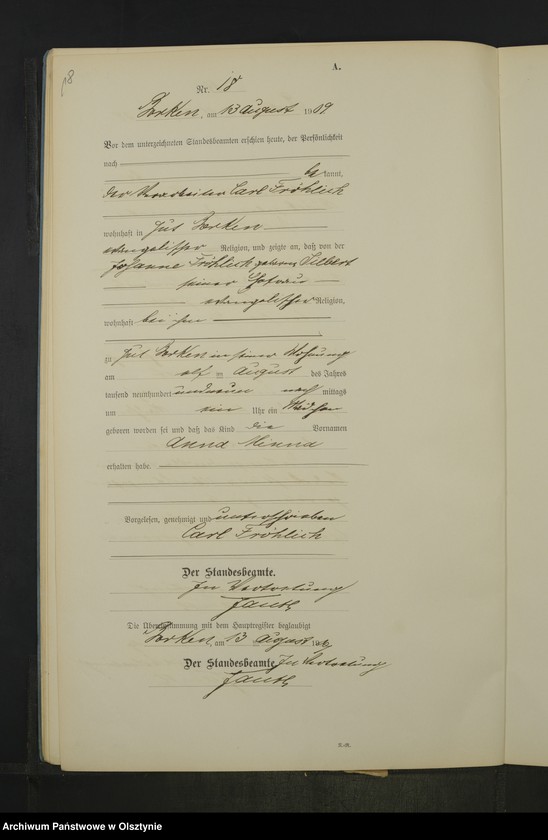 18
A.
Nr. 18
Borken, am 13 August 1909
Vor dem unterzeichneten Standesbeamten erschien heute, der Persönlichkeit
nach
bekannt,
der Vorarbeiter Carl Fröhlich
wohnhaft in Gut Borken
evangelischer Religion, und zeigte an, daß von der
Johanne Fröhlich geborene Silbert
seiner Ehefrau
evangelischer Religion,
wohnhaft bei ihm
zu Gut Borken in seiner Wohnung
am elf ten August des Jahres
tausend neunhundert und neun nach mittags
um ein Uhr ein Mädchen
geboren worden sei und daß das Kind die Vornamen
Anna Minna
erhalten habe.
Vorgelesen, genehmigt und unterschrieben
Carl Fröhlich
Der Standesbeamte.
In Vertretung
Die Übereinstimmung mit dem Hauptregister beglaubigt
Borken, am 13 August 19
Der Standesbeamte. In Vertretung
Archiwum Państwowe w Olsztynie